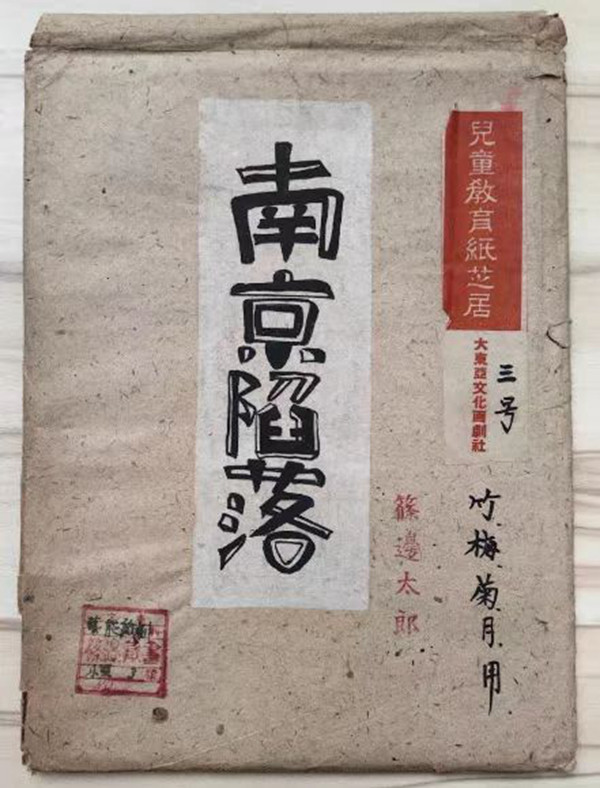 兒童教育紙芝居
大東亞文化画劇社
三号
竹.梅.菊.月.用
篠邉太郎
南京陥落